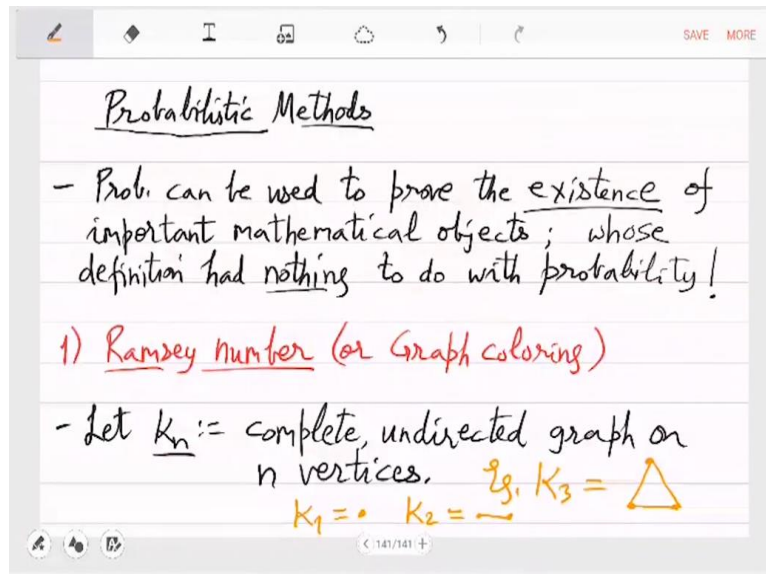 SAVE MORE
Probabilistic Methods
- Prob. can be used to prove the existence of
important mathematical objects; whose
definition had nothing to do with probability!
1) Ramsey number (or Graph coloring)
- Let Kn := complete, undirected graph on
n vertices. Eg. K3 =
K1 = K2 =
141/141